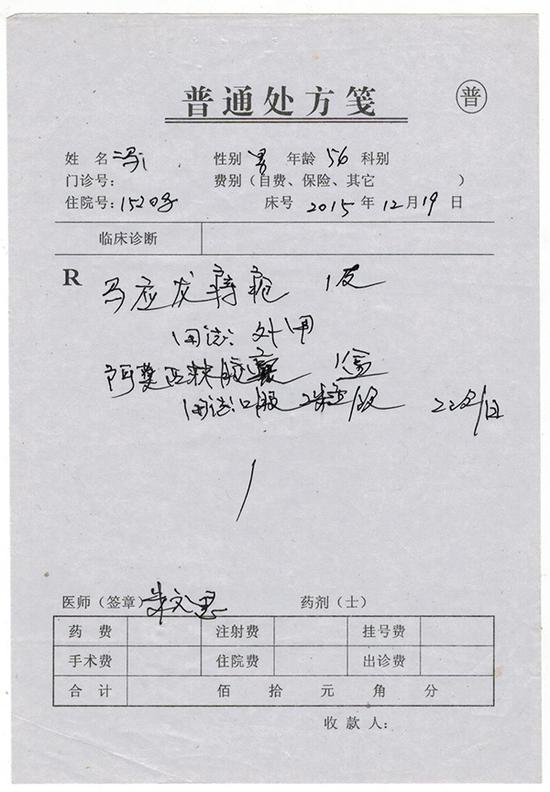 普通处方笺
普
姓名 冯 性别 男 年龄 56 科别
门诊号: 费别(自费、保险、其它 )
住院号: 1520 床号 2015年12月19日
临床诊断
R 马应龙痔疮 1支
用法: 外用
阿莫西林胶囊 1盒
用法: 口服 2粒/次 2次/日
医师(签章) 朱文 药剂(士)
药费 注射费 挂号费
手术费 住院费 出诊费
合计 佰 拾 元 角 分
收款人: